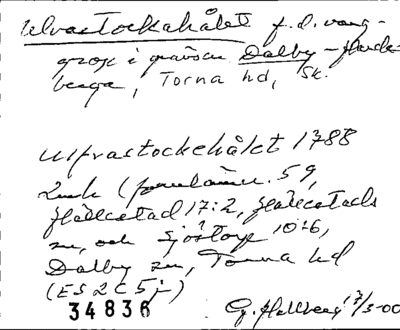 Ulvastockahålet f.d. varg-
grop i gränsen Dalby –
berga, Torna hd, Sk.
Ulfvastockehålet 1788
59,
Hällestad 17:2, Hällestads
sn, och Sjöstorp 10:6,
Dalby sn, Torna hd
(ES 2 C 5j)
34836 G. Hallberg 17/3-00